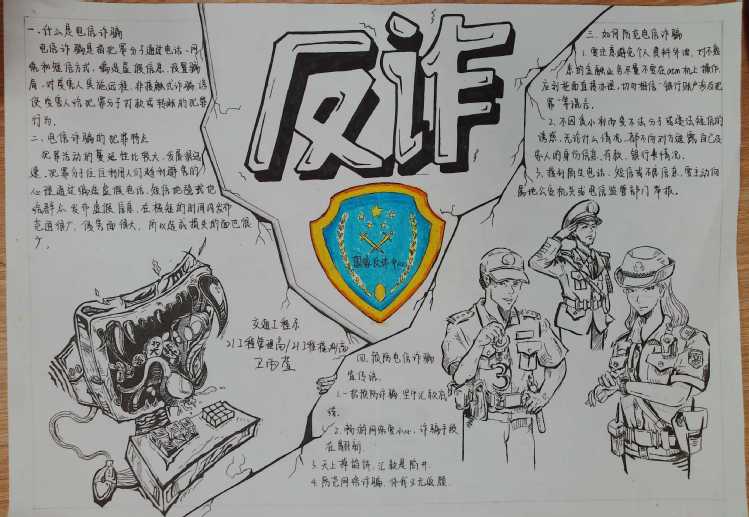 反诈
一、什么是电信诈骗
电信诈骗是指犯罪分子通过电话、网
络和短信方式,编造虚假信息,设置骗
局,对受害人实施远程、非接触式诈骗,诱
使受害人给犯罪分子打款或转账的犯罪
行为。
二、电信诈骗的犯罪特点
犯罪活动的蔓延性比较大,发展很迅
速,犯罪分子往往利用人们趋利避害的
心理通过编造虚假电话、短信地毯式地
给群众发布虚假信息,在极短的时间内发布
范围很广,侵害面很大,所以造成损失的面也很
广。
国家反诈中心
三、如何防范电信诈骗
1.要注意避免个人资料外泄,对不熟
悉的金融业务尽量不要在ATM机上操作,
应到柜面直接办理,切勿相信"银行账户涉及犯
罪"等谎言。
2.不因贪小利而受不法分子或违法短信的
诱惑,无论什么情况,都不向对方透露自己及
家人的身份信息、存款、银行卡情况。
3.接到陌生电话、短信或不良信息,要主动向
属地公安机关或电信监管部门举报。
交通工程系
四、预防电信诈骗
宣传语。
1.一招预防诈骗,坚守汇款底
线。
2.畅游网络要小心,诈骗手段
在翻新。
3.天上掉馅饼,汇款是陷井。
4.防范网络诈骗,你我义无反顾。
3